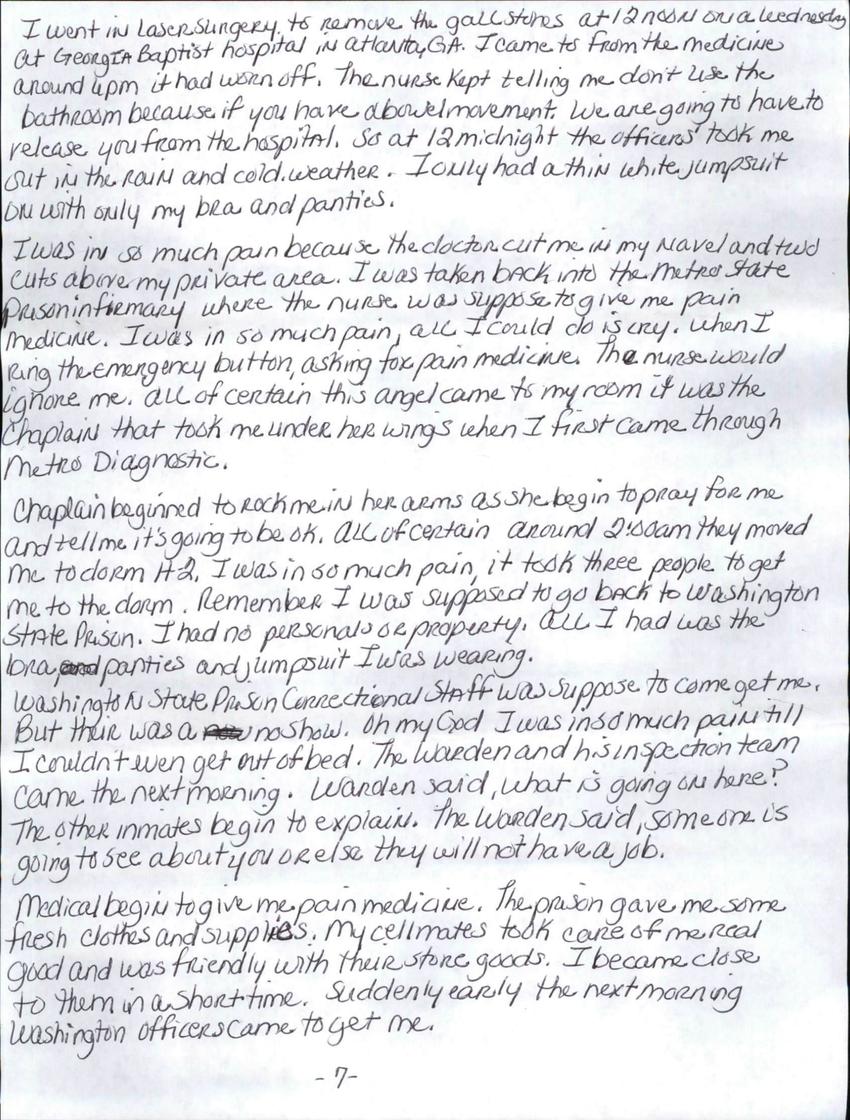 I went in laser surgery. to remove the gallstones at 12 noon on a wednesday
at Georgia Baptist hospital in atlanta, GA. I came to from the medicine
around 4pm it had worn off. The nurse kept telling me don't use the
bathroom because if you have a bowel movement. We are going to have to
release you from the hospital. So at 12 midnight the officers' took me
out in the rain and cold. weather. I only had a thin white jumpsuit
on with only my bra and panties.
I was in so much pain because the doctor cut me in my navel and two
cuts above my private area. I was taken back into the Metro State
Prison infirmary where the nurse was suppose to give me pain
medicine. I was in so much pain, all I could do is cry. when I
ring the emergency button, asking for pain medicine. The nurse would
ignore me. all of certain this angel came to my room it was the
Chaplain that took me under her wings when I first came through
Metro Diagnostic.
Chaplain beginned to rock me in her arms as she begin to pray for me
and tell me it's going to be ok. All of certain around 2:00am they moved
me to dorm H2. I was in so much pain, it took three people to get
me to the dorm. Remember I was supposed to go back to Washington
State Prison. I had no personals or property. All I had was the
bra and panties and jumpsuit I was wearing.
Washington State Prison Correctional Staff was suppose to come get me.
But their was a no show. Oh my God I was in so much pain till
I couldn't even get out of bed. The Warden and his inspection team
came the next morning. Warden said, what is going on here?
The other inmates begin to explain. The Warden said, someone is
going to see about you or else they will not have a job.
Medical begin to give me pain medicine. The prison gave me some
fresh clothes and supplies. My cellmates took care of me real
good and was friendly with their store goods. I became close
to them in a short time. Suddenly early the next morning
Washington officers came to get me.
-7-